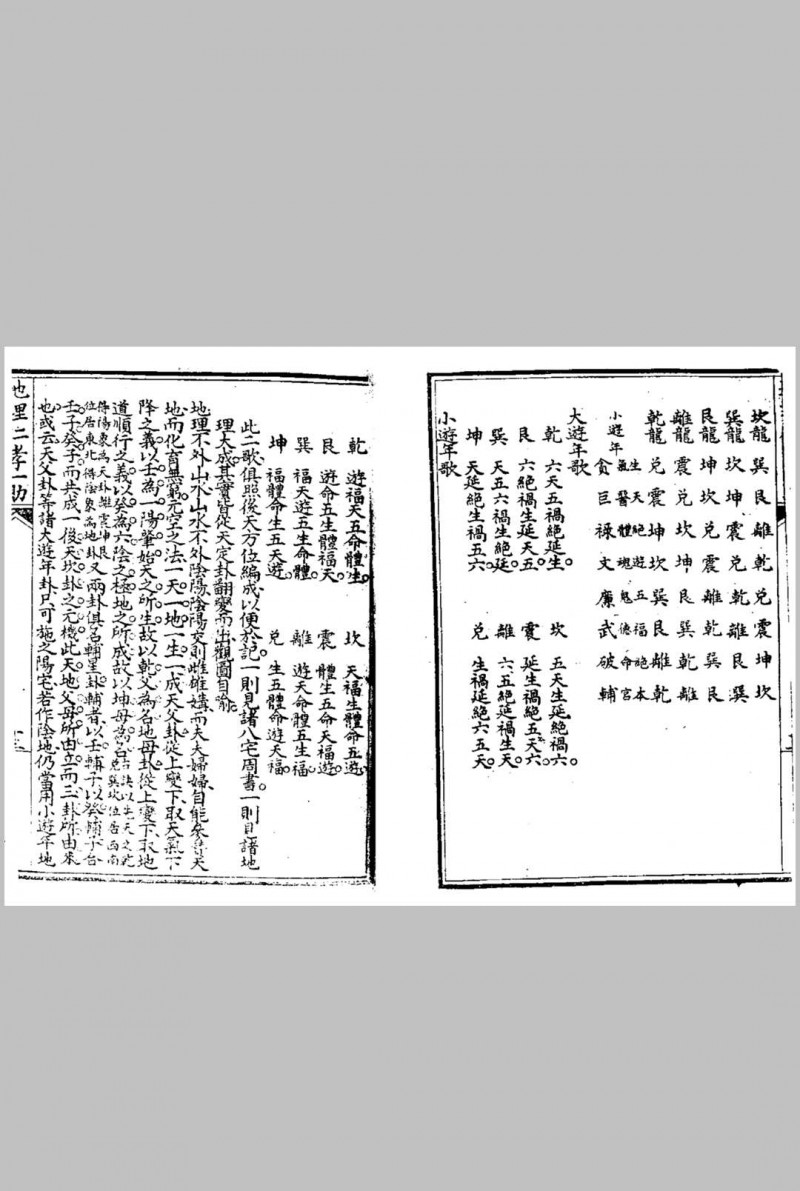 坎龍 巽 艮 離 乾 兌 震 坤 坎
巽龍 坎 坤 震 兌 乾 離 艮 巽
艮龍 坤 坎 兌 震 離 乾 巽 艮
離龍 震 兌 坎 坤 艮 巽 乾 離
乾龍 兌 震 坤 坎 巽 艮 離 乾
小遊年 生氣 天醫 絕體 遊魂 五鬼 福德 絕命 本宮
貪 巨 祿 文 廉 武 破 輔
大遊年歌
乾 六天五禍絕延生 坎 五天生延絕禍六
艮 六絕禍生延天五 震 延生禍絕五天六
巽 天五六禍生絕延 離 六五絕延禍生天
坤 天延絕生禍五六 兌 生禍延絕六五天
小遊年歌
乾 遊福天五命體生 坎 天福生體命五遊
艮 遊命五生體福天 震 體生五命天福遊
巽 福天遊五生命體 離 遊天命體五生福
坤 福體命生五天遊 兌 生五體命遊天福
此二歌俱照後天方位編成以便於記一則見諸八宅周書一則見諸地
理大成其實皆從天定卦翻變而出觀圖自喻
地理不外山水山水不外陰陽陰陽交則雌雄媾而夫夫婦婦自能參天
地而化育無窮元空之法一天一地一生一成天父卦從上變下取天氣下
降之義以壬為一陽肇始天之所生故以乾父為名地母卦從下取地
道順行之義以癸為六陰之極地之所成故以坤母為名
得陽象為天卦離震坤艮
位居東北得陰象為地卦又兩卦俱名輔星卦輔者以壬輔子以癸輔子合
壬子癸子而共成一後天坎卦之元機此天地父母所由立而三卦所由來
也或云天父卦等諸大遊年卦只可施之陽宅若作陰地仍當用小遊年地